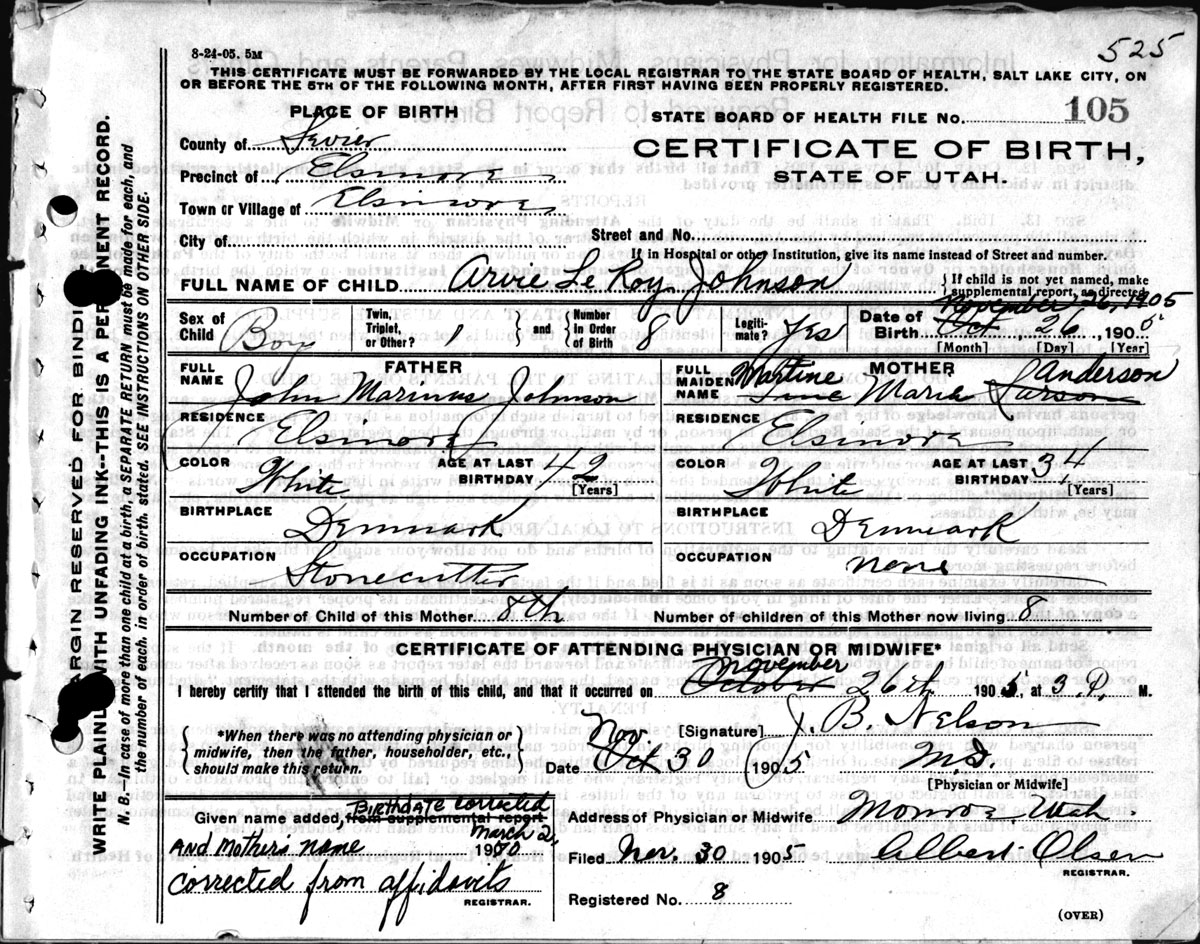 8-24-05. 5M
525
THIS CERTIFICATE MUST BE FORWARDED BY THE LOCAL REGISTRAR TO THE STATE BOARD OF HEALTH, SALT LAKE CITY, ON
OR BEFORE THE 5TH OF THE FOLLOWING MONTH, AFTER FIRST HAVING BEEN PROPERLY REGISTERED.
PLACE OF BIRTH
STATE BOARD OF HEALTH FILE No. 105
County of Sevier
CERTIFICATE OF BIRTH,
Precinct of Elsinore
STATE OF UTAH.
Town or Village of Elsinore
City of
Street and No.
If in Hospital or other Institution, give its name instead of Street and number.
FULL NAME OF CHILD Arvie Le Roy Johnson
{ If child is not yet named, make
supplemental report, as directed
November 26, 1905
Sex of Child Boy
Twin, Triplet, or Other? 1 } and { Number in Order of Birth 8
Legitimate? Yes
Date of Birth Oct 26, 1905
[Month] [Day] [Year]
FATHER
FULL NAME John Marinus Johnson
MOTHER
FULL MAIDEN NAME Martine Anderson
Tine Marie Larson
RESIDENCE Elsinore
RESIDENCE Elsinore
COLOR White
AGE AT LAST BIRTHDAY 42 [Years]
COLOR White
AGE AT LAST BIRTHDAY 34 [Years]
BIRTHPLACE Denmark
BIRTHPLACE Denmark
OCCUPATION Stonecutter
OCCUPATION none
Number of Child of this Mother 8th
Number of children of this Mother now living 8
CERTIFICATE OF ATTENDING PHYSICIAN OR MIDWIFE*
November
I hereby certify that I attended the birth of this child, and that it occurred on October 26th, 1905, at 3 P. M.
*When there was no attending physician or
midwife, then the father, householder, etc.,
should make this return.
[Signature] J. B. Nelson
Nov.
Date Oct 30 1905
M.D.
[Physician or Midwife]
Birthdate corrected
Given name added, from supplemental report
March 2,
And Mothers name 1970
corrected from affidavits
REGISTRAR.
Address of Physician or Midwife Monroe Utah.
Filed Nov. 30 1905 Albert Olsen
REGISTRAR.
Registered No. 8
(OVER)
MARGIN RESERVED FOR BINDING
WRITE PLAINLY WITH UNFADING INK--THIS IS A PERMANENT RECORD.
N. B.—In case of more than one child at a birth, a SEPARATE RETURN must be made for each, and
the number of each, in order of birth, stated. SEE INSTRUCTIONS ON OTHER SIDE.